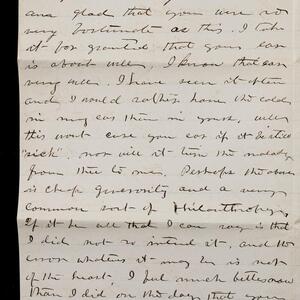 and glad that you were so
very fortunate as this. I take
it for granted that your ear
is about well, I know that ear
very well. I have seen it often
and I would rather have the cold
in my ear than in yours, well
this wont cure your ear if it be still
"sick". nor will it turn the malady
from thee to me. Perhaps the above
is cheap generosity and a very
common sort of Philanthrophy.
If it be all that I can say is that
I did not so intend it, and the
error whatever it may be is not
of the heart. I feel much better now
than I did on the day that you